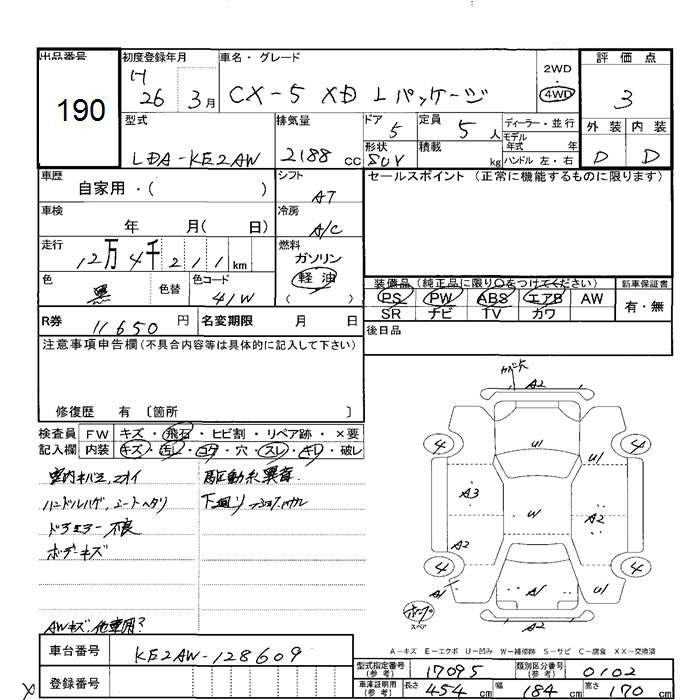 出品番号
190
初度登録年月
H
26 3月
車名・グレード
CX-5 XD Lパッケージ
2WD
・
4WD
評価点
3
外装 内装
D D
型式
LDA-KE2AW
排気量
2188 cc
ドア 5
定員 5 人
形状 SUV
積載 kg
ディーラー・並行
モデル
年式 年
ハンドル 左・右
車歴
自家用・( )
シフト
AT
セールスポイント (正常に機能するものに限ります)
車検
年 月( 日)
冷房
A/C
走行
12万4千211km
燃料
ガソリン
軽油
( )
色
黒
色替
色コード
41W
装備品(純正品に限り○をつけてください)
新車保証書
PS PW ABS エアB AW
SR ナビ TV カワ
有・無
R券 11650円
名変期限 月 日
後日品
注意事項申告欄(不具合内容等は具体的に記入して下さい)
修復歴 有 〔箇所 〕
検査員
記入欄
FW キズ・飛石・ヒビ割・リペア跡・×要
内装 キズ・汚レ・コゲ・穴・スレ・キレ・破レ
室内キバミ、ニオイ
ハンドルハゲ、シートヘタリ
ドアミラー不良
ボデーキズ
駆動系異音
下廻り
AWキズ、他車用?
A2
4
U1
U1
4
A3
W
A2
A2
4
4
A1
A1
U1
A2
スペア
A-キズ E-エクボ U-凹み W-補修跡 S-サビ C-腐食 XX-交換済
車台番号
KE2AW-128609
登録番号
型式指定番号
(参考)
17095
類別区分番号
(参考)
0102
車庫証明用
(参考)
長さ 454 cm 幅 184 cm 高さ 170 cm